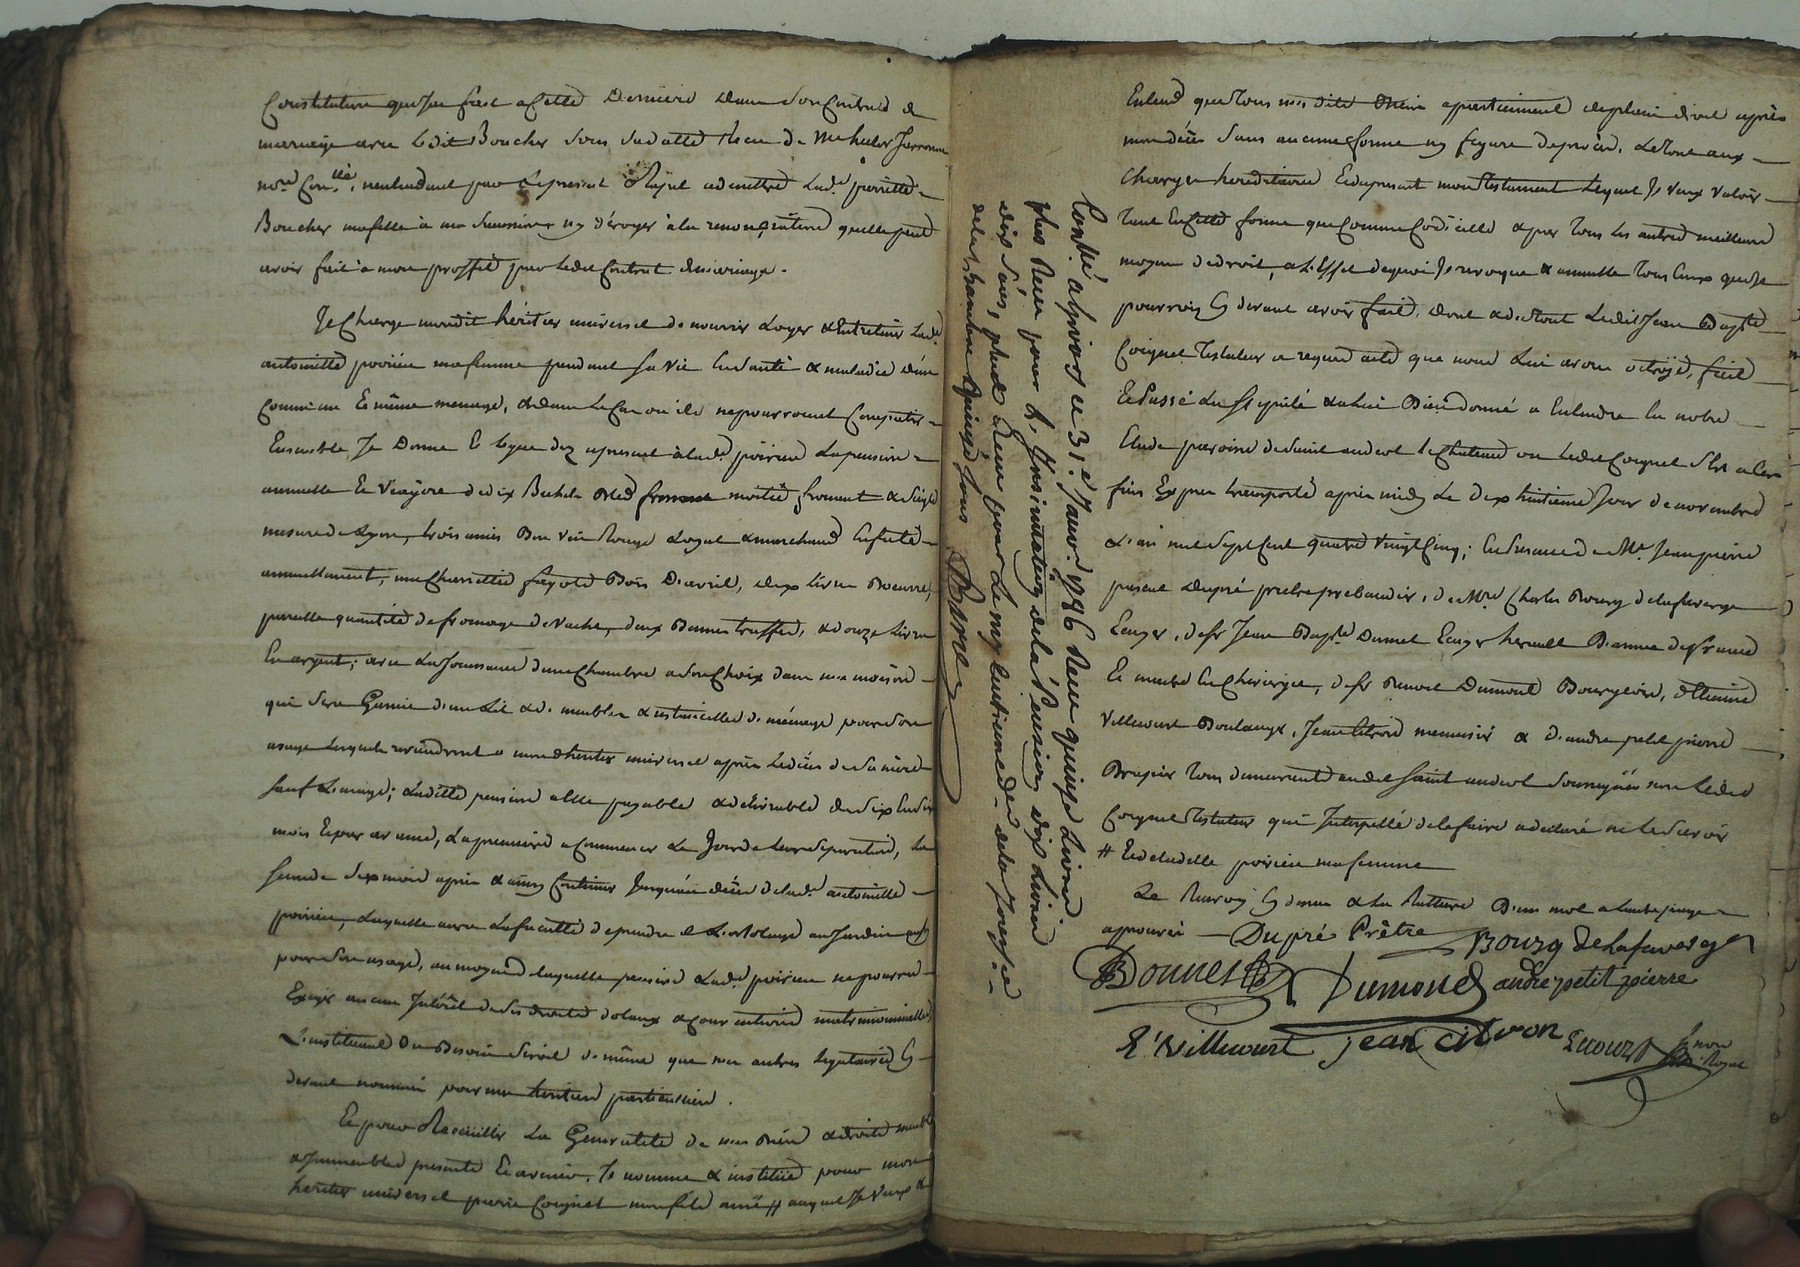 Constitution que J'ai fait a Cette Derniere dans son Contrat de
mariage avec ledit Boucher sous sa datte Recu de Me hulos
nore Con.lle, nentendant par le present Rejet admettre Lade pierrette
Boucher ma fille à ma succession ny déroger à la renonciation quelle peut
avoir fait à mon proffit par ledit Contrat de mariage.
Je Charge mondit héritier universel de nourrir Loger & Entretenir Lade
antoinette poirieu ma femme pendant sa vie En santé & maladie dans
Comme un & même menage, & dans Le Cas ou ils ne pourroient Compatir
Ensemble Je Donne & legue dez apresent à lade poirieu La pension
annuelle & Viagere de dix Bichets Bled froment moitié froment & seigle
mesure de Lyon, trois anées Bon Vin Rouge Loyal & marchand En futé
annuellement, une Charretée fagots Bois D'avril, dix Livres Beurre,
pareille quantité de fromage de Vache, deux Bennes truffes, & douze Livres
En argent; avec La Jouissance d'une Chambre a son Choix dans ma maison
qui sera Garnie d'un Lit & de meubles & ustencilles de ménage pour son
usage Lesquels reviendront a mondt heritier universel après Le décès de sa mère
sauf L'usage; Ladite pension allée payable & délivrable de six En six
mois & par avance, La premiere a Commencer Le Jour de leur separation, la
seconde six mois après & ainsy Continuer Jusquau décès de lade antoinette
poirieu, Laquelle aura La faculté de prendre de L'ortolage au Jardin
pour son usage, au moyend de laquelle pension Lade poirieu ne pourra
Exiger aucun Intérêt de ses droits dotaux & Conventions matrimonialles
L'instituant au Besoin de même que mes autres legataires Cy
devant nommés pour mes heritiers particuliers.
Et pour Recueillir La Generalité de mes Biens & droits meubles
& Immeubles presents & avenir, Je nomme & institue pour mon
heritier universel pierre Coignet mon fils ainé # auquel Je Veux &
Contlé a Givors ce 31e Janvr 1786 Recu quinze Livres
plus Recu pour L'Insinuation de la Pension dix Livres
dix sols, plus Recu pour Le my centieme de de la Jouissance
de la chambre quinze sous Barol
Entend que tous mes dits Biens appartiennent de plein droit après
mon décès sans aucune forme ny figure de procès. Le tout aux
Charges hereditaires & dapresent mon testament Lequel Je Veux Valoir
tant En Cette forme que Comme Codicille & par tous les autres meilleurs
moyens de droit, a L'Effet de quoi Je revoque & annulle tous Ceux que Je
pourrois Cy devant avoir fait. dont & du tout Ledit Jean Bapte
Coignet Testateur a requis acte que nous Lui avons octroyé, fait
& Passé Lu & a lui Bien donné a Entendre En notre
Etude paroisse de saint andeol le Chateau ou ledit Coignet s'est a Ces
fins Exprès transporté après midy Le dix huitieme Jour de novembre
L'an mil sept Cent quatre Vingt Cinq; En presence de Me Jean pierre
pascal dupré pretre prebandier, de Mre Charles Bourg delafaverge
Ecuyer, de sr Jean Bapte Donnet
& maitre En Chirurgie, de sr Benoit Dumond Bourgeois, Etienne
Villecourt Boulanger, Jean Citron menuisier & d'andré petit pierre
Drapier tous demeurant audit saint andeol soussignés non Ledit
Coignet Testateur qui Interpellé de le faire a declaré ne le savoir
# & de ladite poirieu ma femme
Le Renvoy Cy dessus & La Rature D'un mot a lautre page
approuvés — Dupré Prêtre Bourg delafaverge
Donnet Dumond andre petit pierre
E. Villecourt jean citron Lecourt
nore Royal